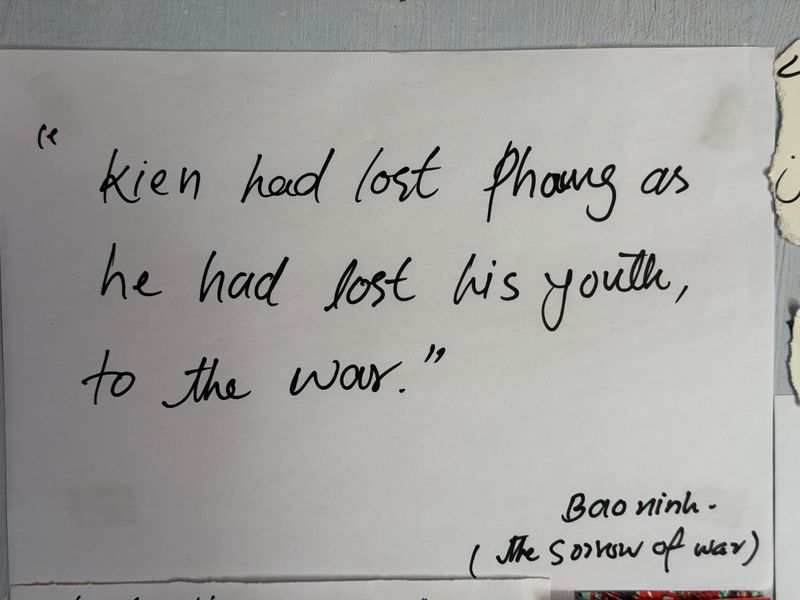 " Kien had lost Phoung as
he had lost his youth,
to the war."
Bao ninh.
(the Sorrow of war)